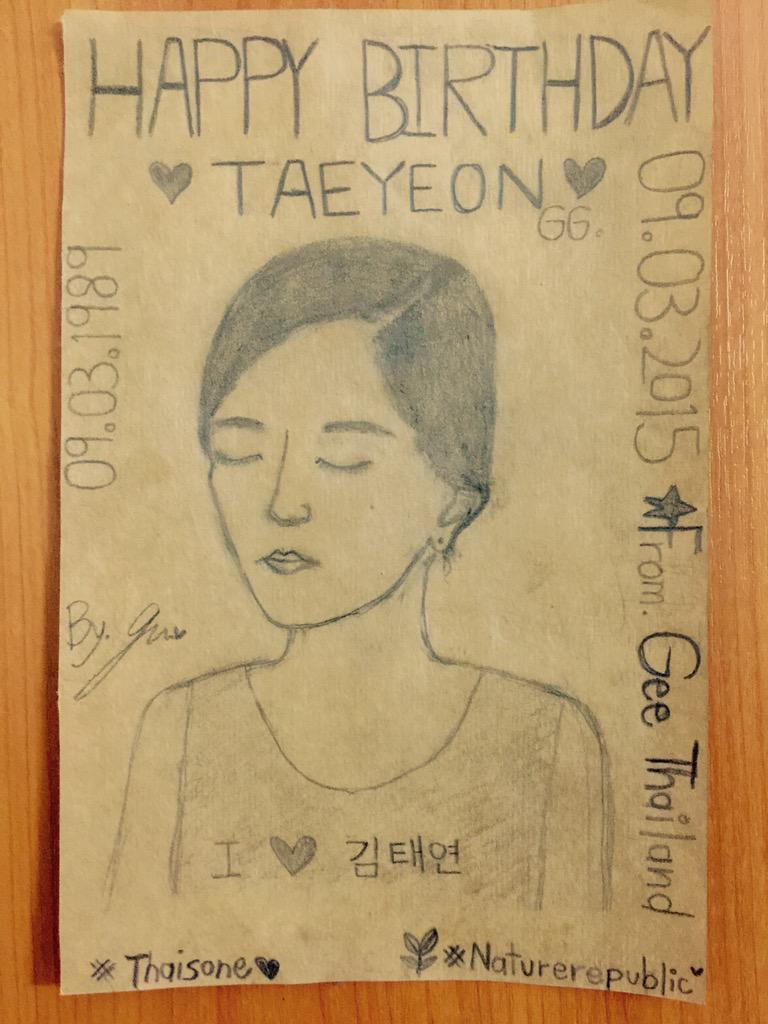 HAPPY BIRTHDAY
♥ TAEYEON ♥
GG.
09.03.1989
09.03.2015 ★ From. Gee Thailand
By.
I ♥ 김태연
#Thaisone♥
#Naturerepublic♥